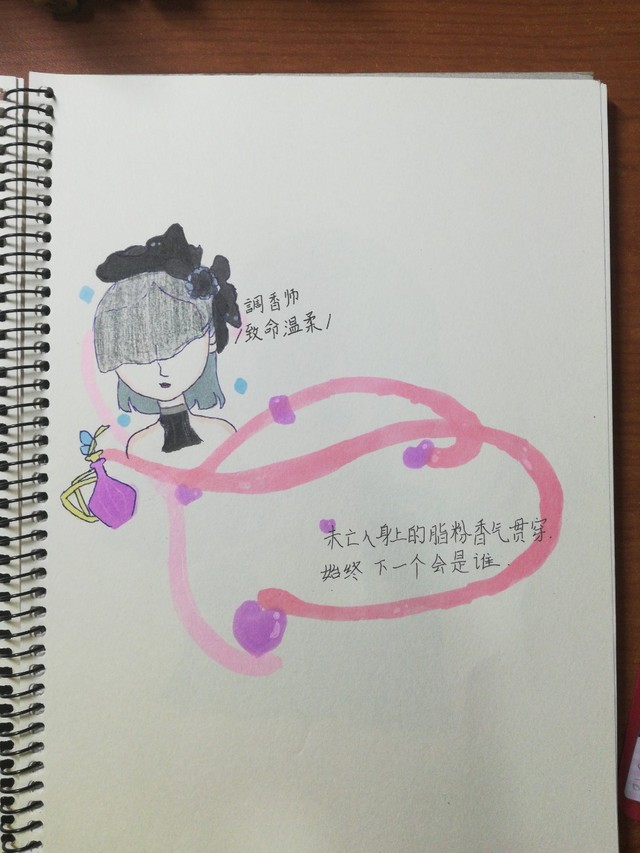 調香师
/致命温柔/
未亡人身上的脂粉香气贯穿.
始终 下一个会是谁.